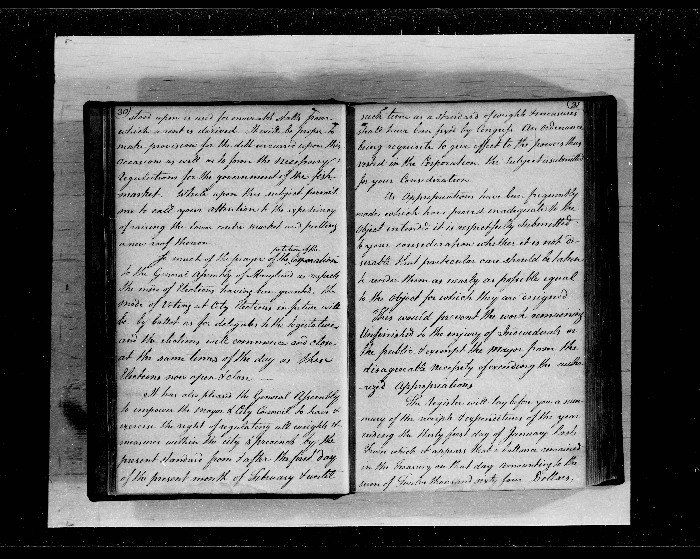 30
stood upon is used for innumerable stalls from
which a rent is derived. It will be proper to
make provision for the debt incurred upon this
occasion as well as to form the necessary
regulations for the government of the fish
market. Whilst upon this subject permit
me to call your attention to the expediency
of raising the lower centre market and putting
a new roof thereon
So much of the prayer of the petition of the Corporation
to the General Assembly of Maryland as respects
the mode of Elections having been granted, the
mode of Voting at City Elections in future will
be by ballot as for delegates to the legislature
and the elections will commence and close
at the same times of the day as these
Elections now open & close
It has also pleased the General Assembly
to empower the Mayor & City Council to have &
exercise the right of regulating all weights &
measures within the city & precincts by the
present standard from & after the first day
of the present month of February & until
31
such time as a standard of weights & measures
shall have been fixed by Congress. An ordinance
being requisite to give effect to the powers thus
vested in the Corporation the subject is submitted
for your Consideration
As Appropriations have been frequently
made which have proved inadequate to the
object intended it is respectfully submitted
to your consideration whether it is not de-
sirable that particular care should be taken
to render them as nearly as possible equal
to the object for which they are designed
This would prevent the work remaining
unfinished to the injury of Individuals or
the public & exempt the Mayor from the
disagreeable necessity of exceeding the autho-
rized Appropriations
The Register will lay before you a sum-
mary of the receipts & expenditures of the year
ending the thirty first day of January last
from which it appears that a balance remained
in the treasury on that day amounting to the
sum of Twelve thousand sixty four Dollars.